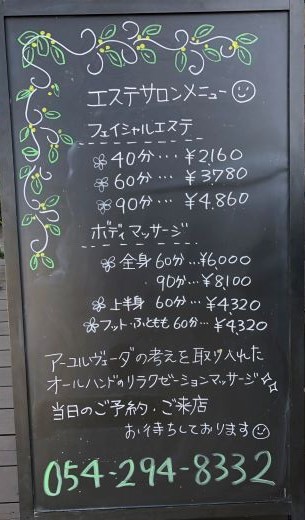 エステサロンメニュー
フェイシャルエステ
40分… ¥2,160
60分… ¥3,780
90分… ¥4,860
ボディマッサージ
全身 60分…¥6,000
90分…¥8,100
上半身 60分…¥4,320
フット・ふともも 60分…¥4,320
アーユルヴェーダの考えを取り入れた
オールハンドのリラクゼーションマッサージ
当日のご予約・ご来店
お待ちしております
054-294-8332